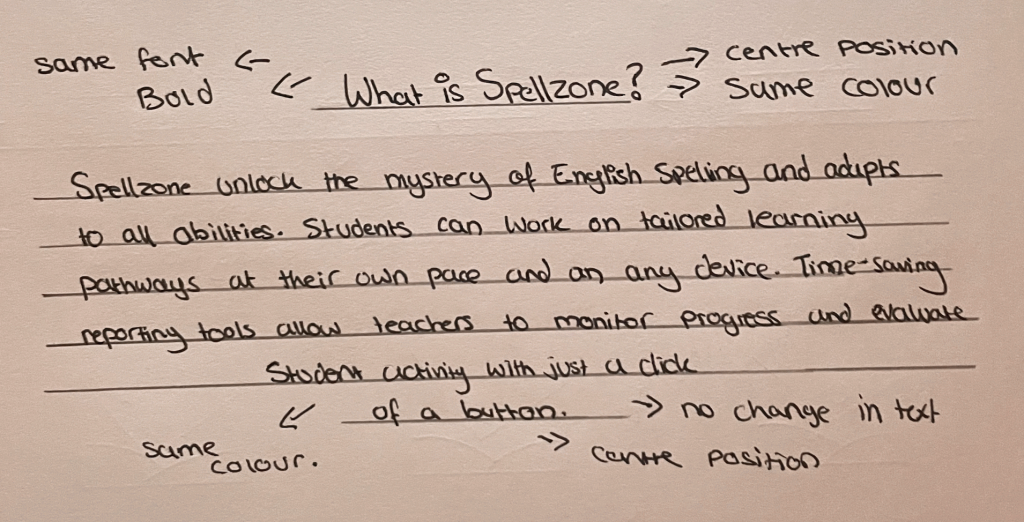 same font ← What is Spellzone? → centre position
Bold ← → Same colour
Spellzone unlock the mystery of English Speling and adapts
to all abilities. Students can work on tailored learning
pathways at their own pace and on any device. Time-saving
reporting tools allow teachers to monitor progress and evaluate
Student activity with just a click
of a button. → no change in text
← same colour. → centre position